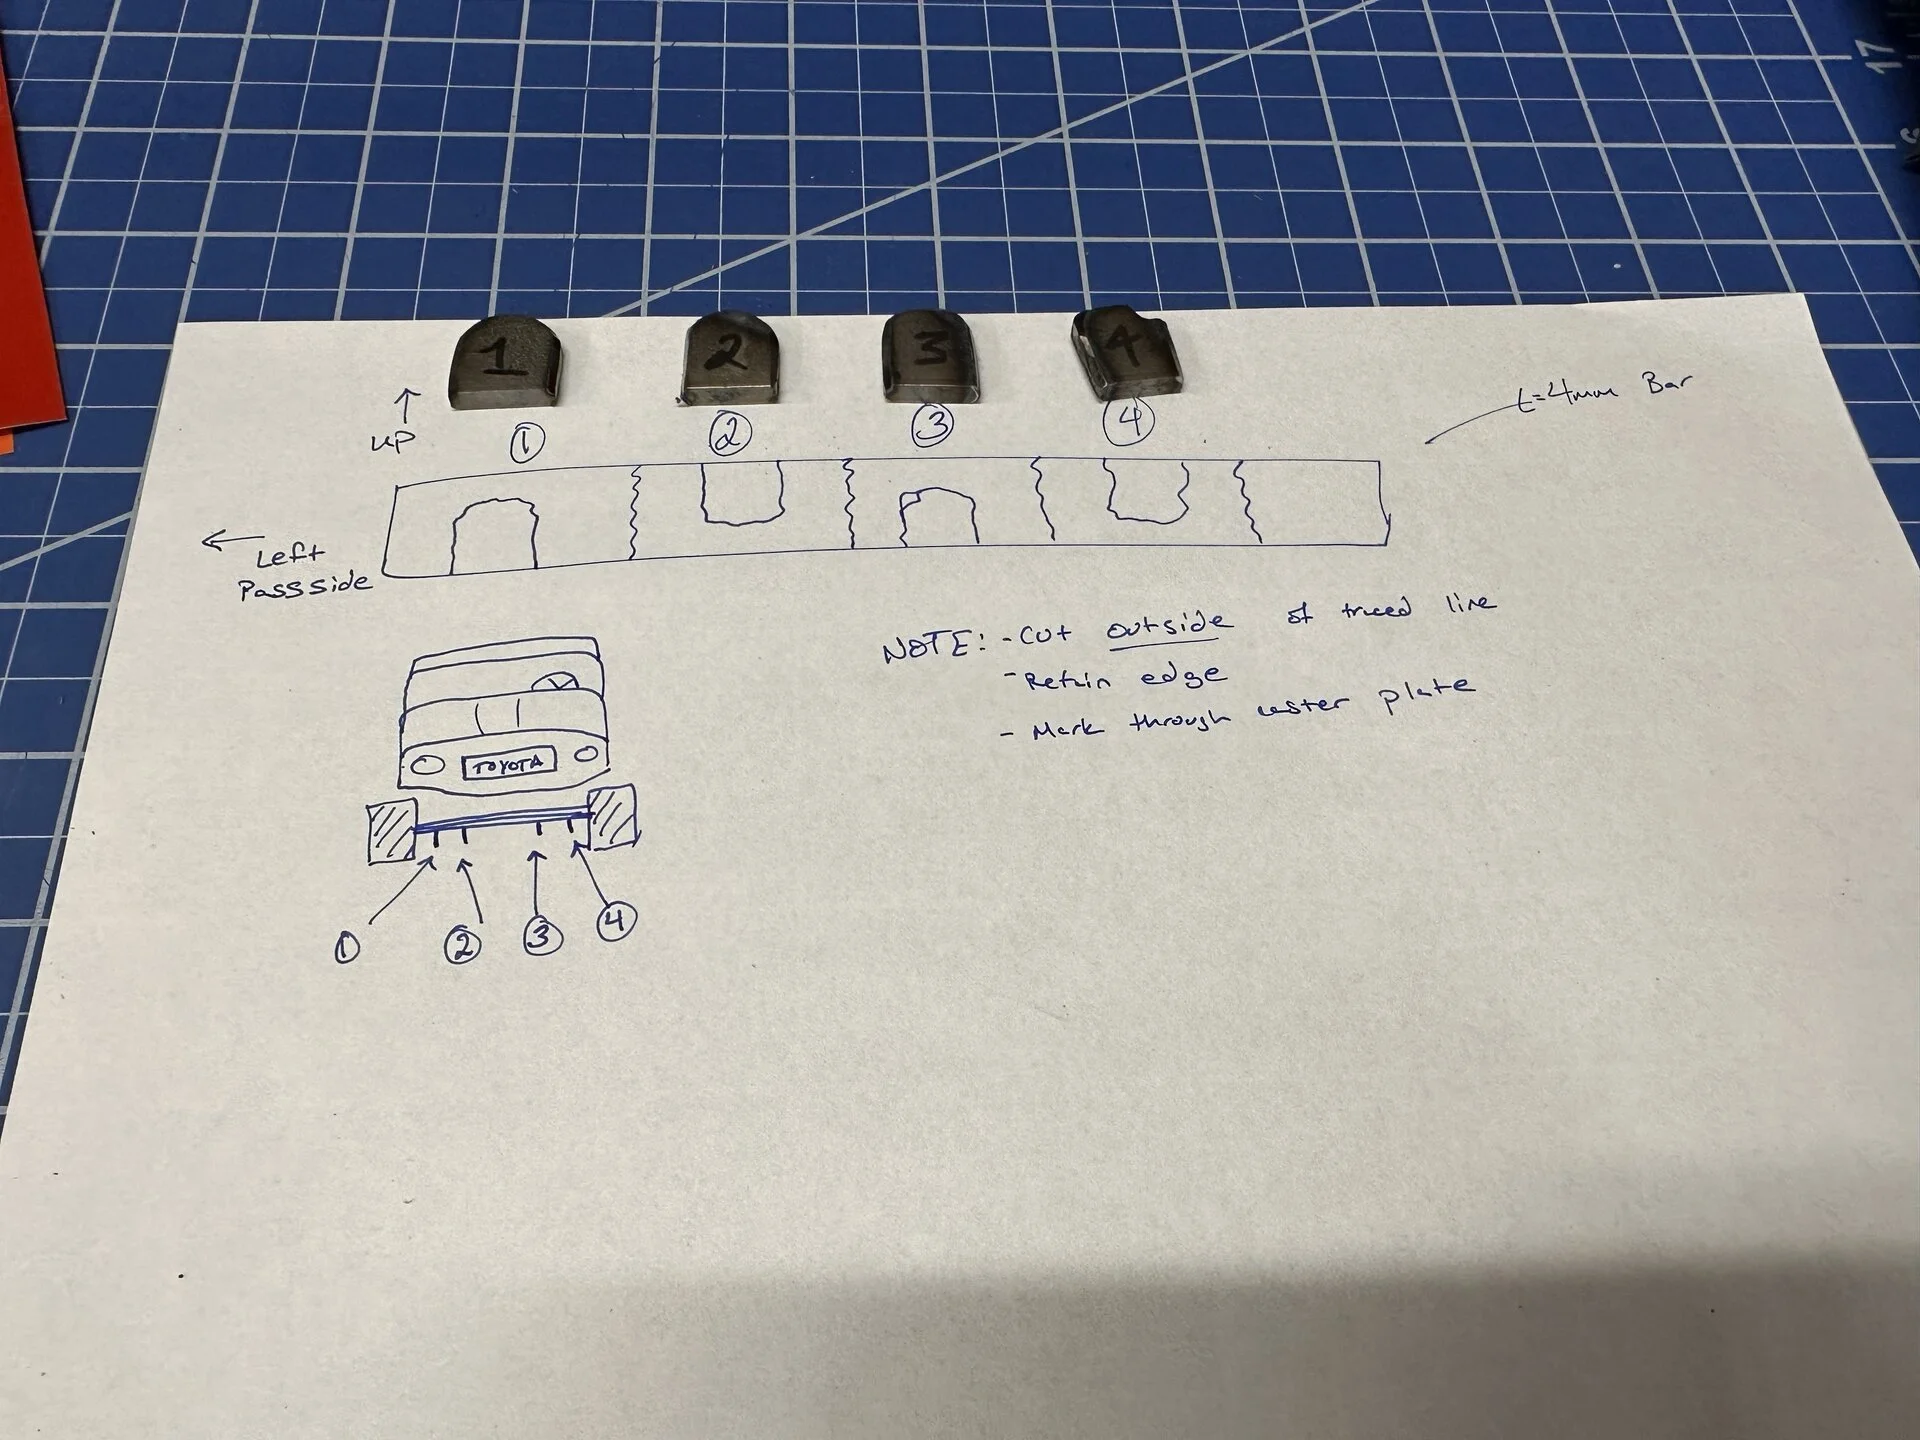 17
1 2 3 4
UP
① ② ③ ④
t=4mm Bar
Left
Pass side
NOTE: - Cut outside of traced line
- Retain edge
- Mark through caster plate
TOYOTA
① ② ③ ④